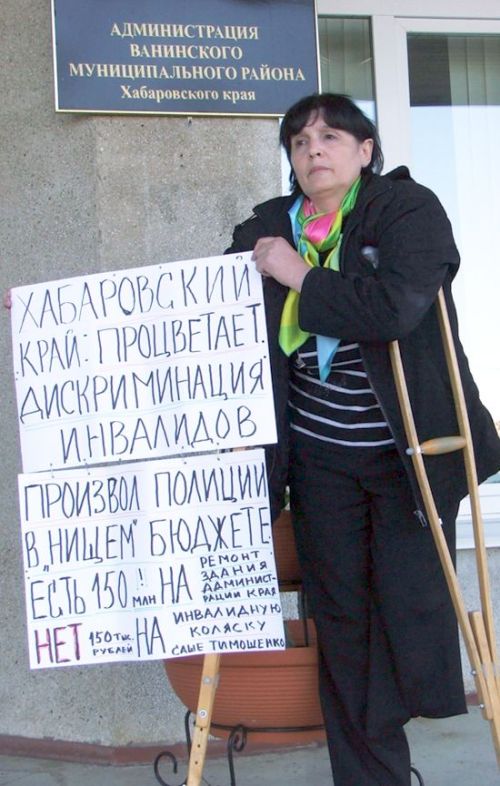 АДМИНИСТРАЦИЯ
ВАНИНСКОГО
МУНИЦИПАЛЬНОГО РАЙОНА
Хабаровского края
ХАБАРОВСКИЙ
КРАЙ: ПРОЦВЕТАЕТ
ДИСКРИМИНАЦИЯ
ИНВАЛИДОВ
ПРОИЗВОЛ ПОЛИЦИИ
В „НИЩЕМ" БЮДЖЕТЕ
ЕСТЬ 150 !! МЛН НА РЕМОНТ
ЗДАНИЯ
АДМИНИСТ-
РАЦИИ КРАЯ
НЕТ 150 ТЫС. РУБЛЕЙ НА ИНВАЛИДНУЮ
КОЛЯСКУ
САШЕ ТИМОШЕНКО